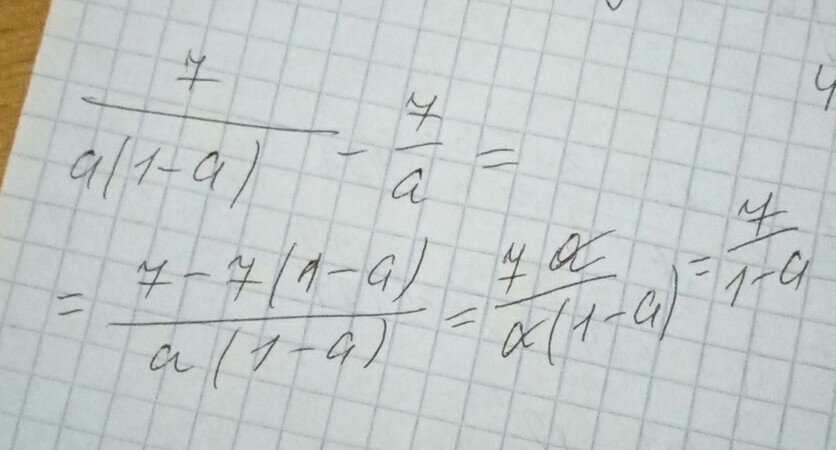 7/(a(1-a)) - 7/a =
= (7-7(1-a))/(a(1-a)) = 7a/(a(1-a)) = 7/(1-a)